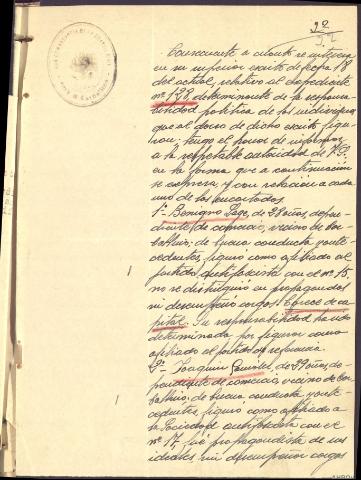 22
Consecuente a cuanto se interesa
en su superior escrito de fecha 18
del actual, relativo al expediente
nº 198, determinante de la responsa-
bilidad política de los individuos
que al dorso de dicho escrito figu-
ran, tengo el honor de informar
a la respetable autoridad de V.S.
en la forma que a continuación
se expresa y con relación a cada
uno de los encartados.
1º Benigno Lage, de 38 años, depen-
diente de comercio, vecino de Car-
ballino; de buena conducta y ante-
cedentes, figuró como afiliado al
partido antifascista con el nº 15,
no se distinguió en propagandas
ni desempeñó cargos. Carece de ca-
pital. Su responsabilidad ha sido
determinada por figurar como
afiliado al partido de referencia.
2º Joaquín, de 39 años, de-
pendiente de comercio, vecino de Car-
ballino; de buena conducta y ante-
cedentes, figuró como afiliado a
la Sociedad antifascista con el
nº 17, fué propagandista de sus
ideales, sin desempeñar cargos